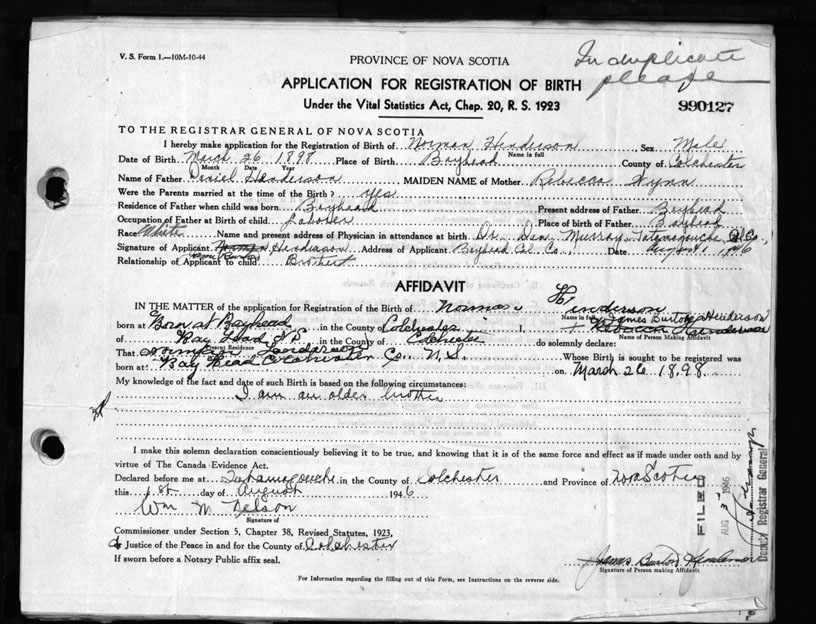 V. S. Form 1.—10M-10-44
PROVINCE OF NOVA SCOTIA
In duplicate
please
APPLICATION FOR REGISTRATION OF BIRTH
Under the Vital Statistics Act, Chap. 20, R. S. 1923
990127
TO THE REGISTRAR GENERAL OF NOVA SCOTIA
I hereby make application for the Registration of Birth of Norman Henderson Sex Male
Name in full
Date of Birth March 26 1898 Place of Birth Bayhead County of Colchester
Month Date Year
Name of Father Daniel Henderson MAIDEN NAME of Mother Rebecca Wynn
Were the Parents married at the time of the Birth? yes
Residence of Father when child was born Bayhead Present address of Father Bayhead
Occupation of Father at Birth of child Laborer Place of birth of Father Bayhead
Race White Name and present address of Physician in attendance at birth Dr. Dan Murray, Tatamagouche, Col Co.,
Signature of Applicant Norman Henderson Address of Applicant Bayhead Col. Co., Date August 1, 1946
Relationship of Applicant to child Brother
AFFIDAVIT
IN THE MATTER of the application for Registration of the Birth of Norman Henderson
Name in full
James Burton Henderson
born at Born at Bayhead in the County of Colchester I, Rebecca Henderson
of Bay Head N S in the County of Colchester do solemnly declare:
Present Residence
Name of Person Making Affidavit
That Norman Henderson Whose Birth is sought to be registered was
born at: Bay Head Colchester Co., N. S. on March 26 1898
My knowledge of the fact and date of such Birth is based on the following circumstances:
I am an older brother
I make this solemn declaration conscientiously believing it to be true, and knowing that it is of the same force and effect as if made under oath and by
virtue of The Canada Evidence Act.
Declared before me at Tatamagouche in the County of Colchester and Province of Nova Scotia
this 1st day of August 1946
Wm M Nelson
Signature of
Commissioner under Section 5, Chapter 38, Revised Statutes, 1923,
Justice of the Peace in and for the County of Colchester
If sworn before a Notary Public affix seal.
James Burton Henderson
Signature of Person making Affidavit
For Information regarding the filling out of this Form, see Instructions on the reverse side.
FILED
AUG
Deputy Registrar General